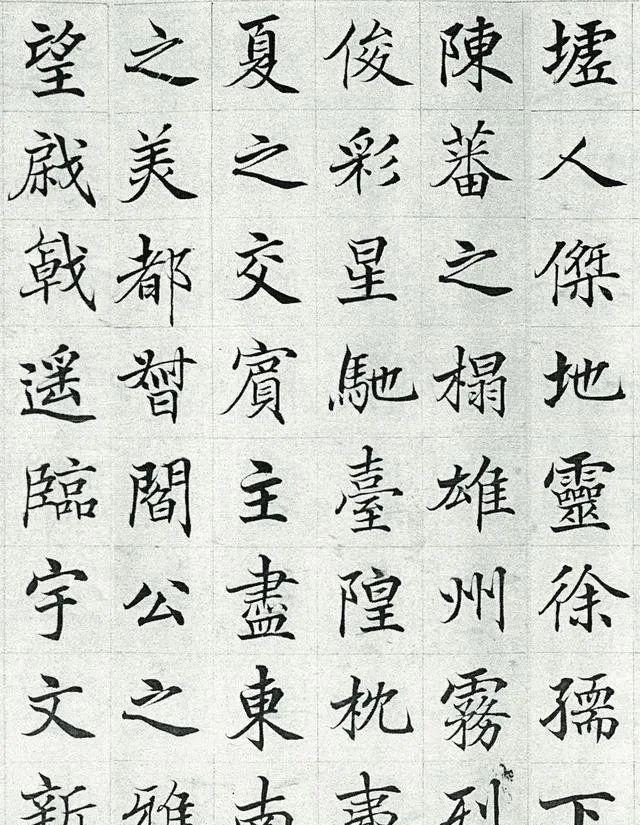 墟人傑地靈徐孺下
陳蕃之榻雄州霧列
俊彩星馳臺隍枕夷
夏之交賓主盡東南
之美都督閻公之雅
望棨戟遥臨宇文新